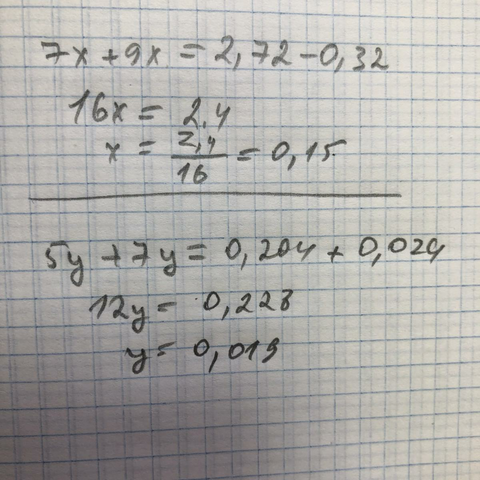 7x + 9x = 2,72 - 0,32
16x = 2,4
x = 2,4/16 = 0,15
5y + 7y = 0,204 + 0,024
12y = 0,228
y = 0,019